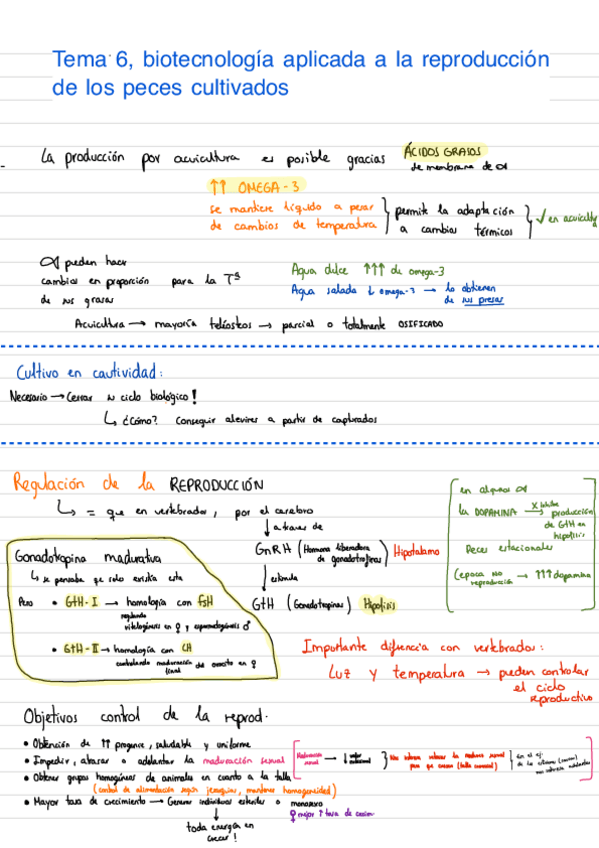 Tema 6, biotecnología aplicada a la reproducción
de los peces cultivados
La producción por acuicultura es posible gracias ÁCIDOS GRASOS
de membrana de
↑↑ OMEGA-3
se mantiene líquido a pesar
de cambios de temperatura
permite la adaptación
a cambios térmicos
✓ en acuicult
pueden hacer
cambios en proporción para la Tª
de sus grasas
Agua dulce ↑↑↑ de omega-3
Agua salada ↓ omega-3 → lo obtienen
de sus presas
Acuicultura → mayoría teleósteos → parcial o totalmente OSIFICADO
Cultivo en cautividad:
Necesario → Cerrar su ciclo biológico!
↳ ¿Cómo? Conseguir alevines a partir de capturados
Regulación de la REPRODUCCIÓN
↳ = que en vertebrados, por el cerebro
↓ a traves de
GnRH (Hormona liberadora
de gonadotropinas) Hipotálamo
↓ estimula
GtH (Gonadotropinas) Hipófisis
en algunos
la DOPAMINA X inhibe → producción
de GtH en
hipófisis
Peces estacionales
(epoca no
reproducción → ↑↑↑ dopamina
Gonadotropina madurativa
↳ se pensaba que solo existía esta
Pero • GtH-I → homología con FSH
regulando
vitelogénesis en ♀ y espermatogénesis ♂
• GtH-II → homología con LH
controlando maduración del ovocito en ♀
final
Importante diferencia con vertebrados:
Luz y temperatura → pueden controlar
el ciclo
reproductivo
Objetivos control de la reprod.
• Obtención de ↑↑ progenie, saludable y uniforme
• Impedir, atrasar o adelantar la maduración sexual
Maduración
sexual
• Obtener grupos homogéneos de animales en cuanto a la talla
(control de alimentación según jerarquías, mantener homogeneidad)
• Mayor tasa de crecimiento → Generar individuos estériles o monosexo
♀ mejor ↑ tasa de
toda energía en
crecer!